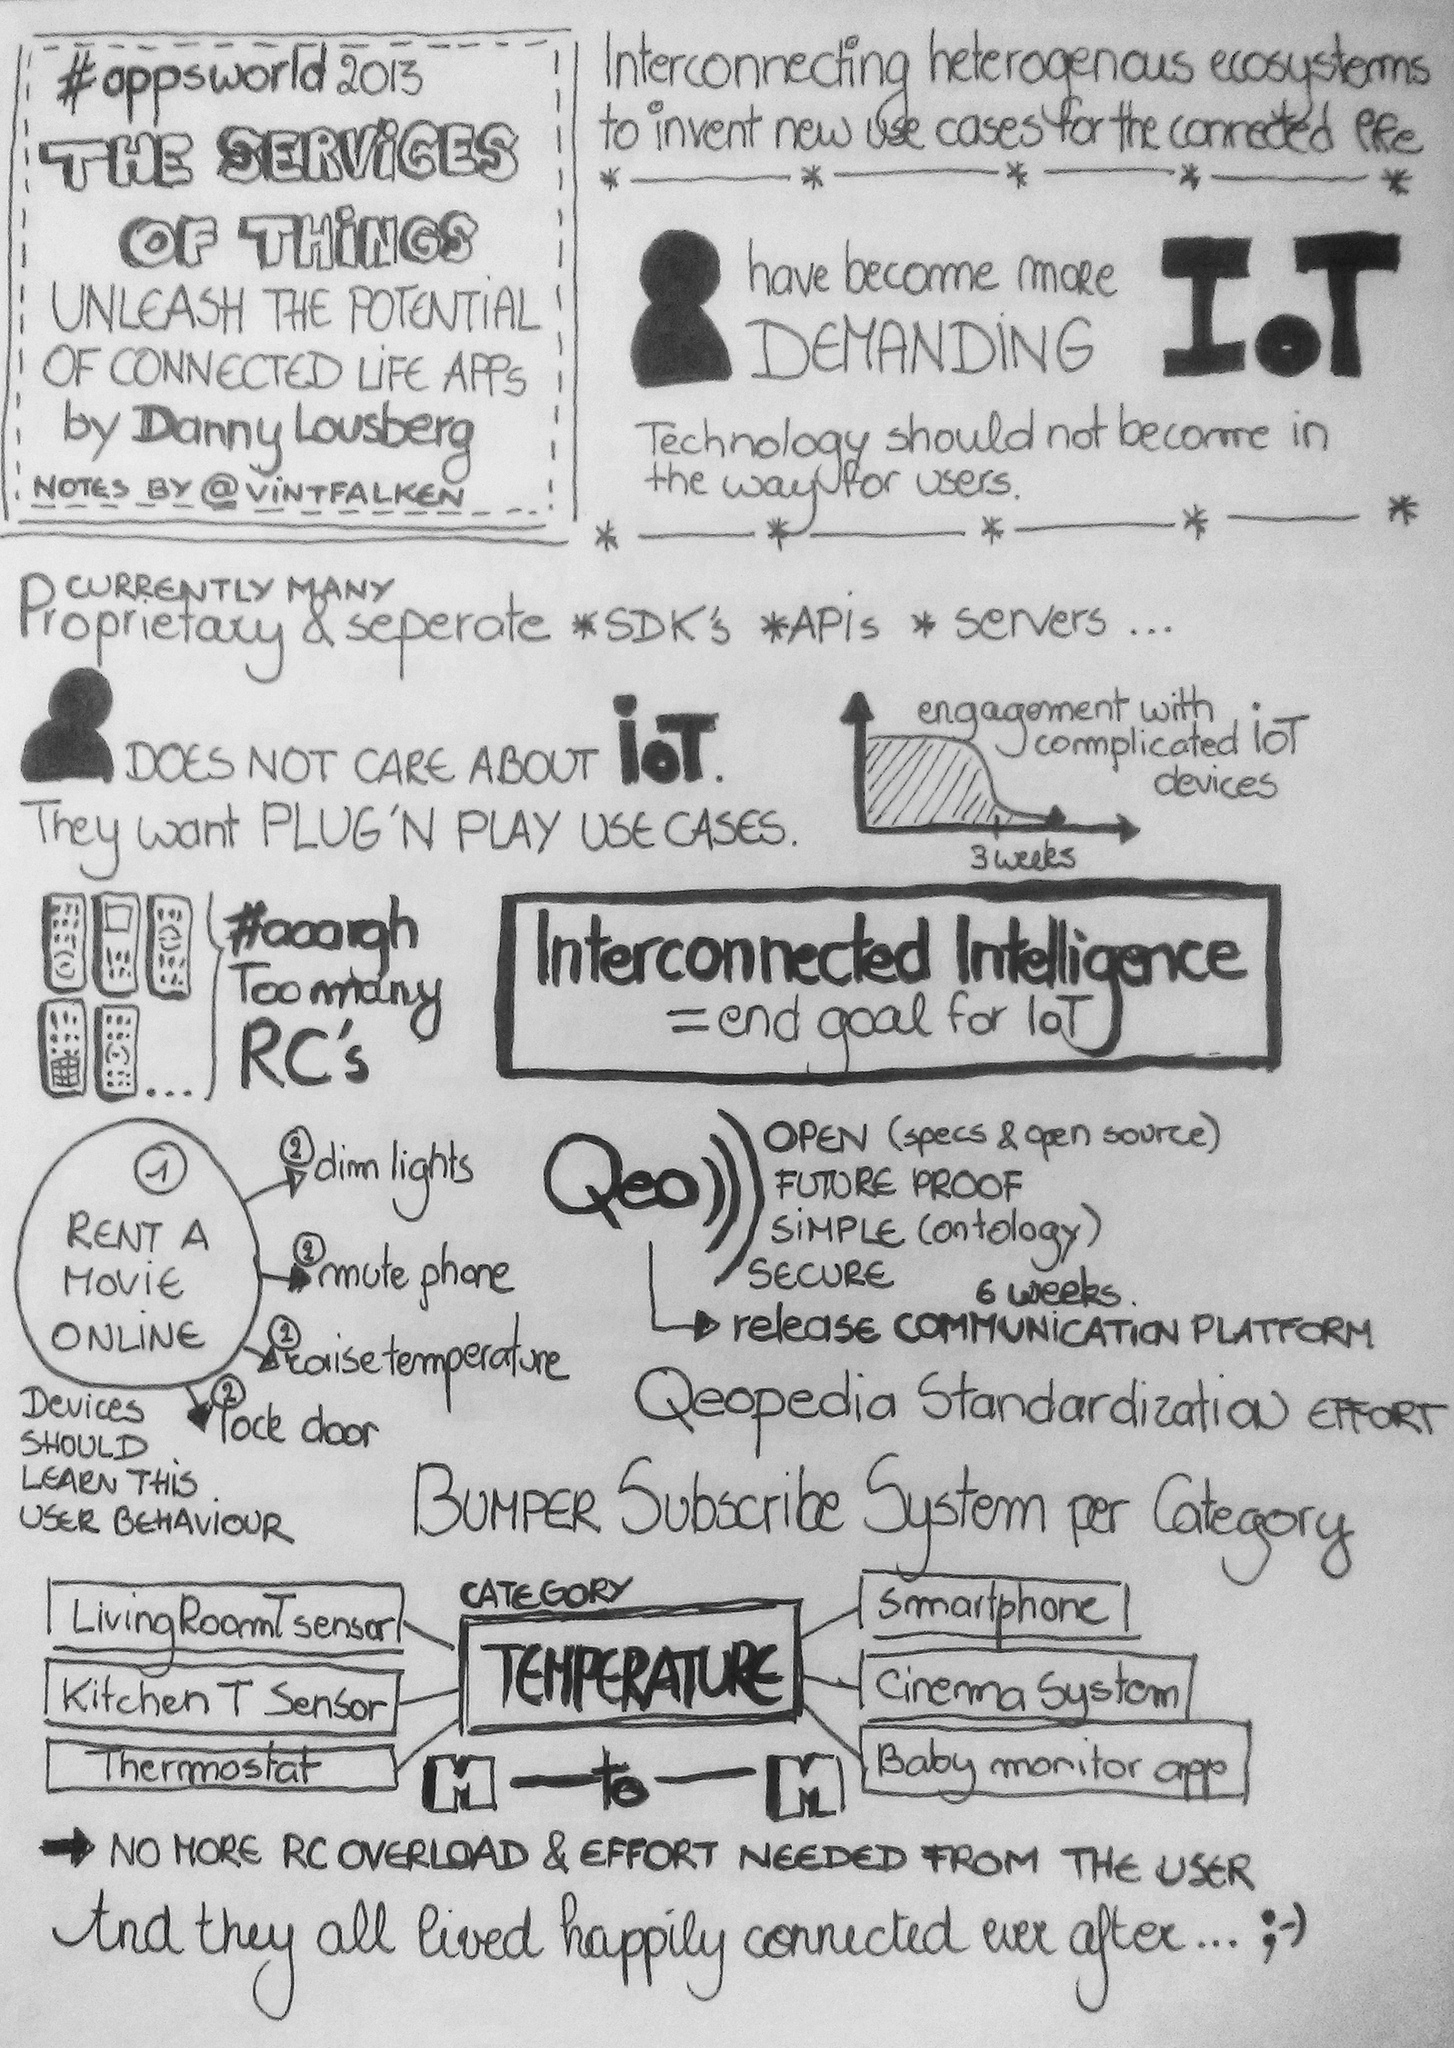 #appsworld 2013
THE SERViCES
OF THiNGS
UNLEASH THE POTENTiAL
OF CONNECTED LiFE APPs
by Danny Lousberg
NOTES BY @VINTFALKEN
Interconnecting heterogenous ecosystems
to invent new use cases for the connected life
have become more
DEMANDiNG
IoT
Technology should not become in
the way for users.
CURRENTLY MANY
Proprietary & seperate *SDK's *APis * servers ...
DOES NOT CARE ABOUT ioT.
They want PLUG'N PLAY USE CASES.
engagement with
complicated ioT
devices
3 weeks
#aaargh
Too many
RC's
...
Interconnected Intelligence
= end goal for IoT
1
RENT A
MOViE
ONLiNE
2 dim lights
2 mute phone
2 raise temperature
2 lock door
Devices
SHOULD
LEARN THiS
USER BEHAViOUR
Qeo
OPEN (specs & open source)
FUTURE PROOF
SiMPLE (ontology)
SECURE
6 weeks.
release COMMUNiCATiON PLATFORM
Qeopedia Standardization EFFORT
BUMPER Subscribe System per Category
LivingRoomT sensor
Kitchen T Sensor
Thermostat
CATEGORY
TEMPERATURE
Smartphone
Cinema System
Baby monitor app
M — to — M
→ NO MORE RC OVERLOAD & EFFORT NEEDED FROM THE USER
And they all lived happily connected ever after... ;-)